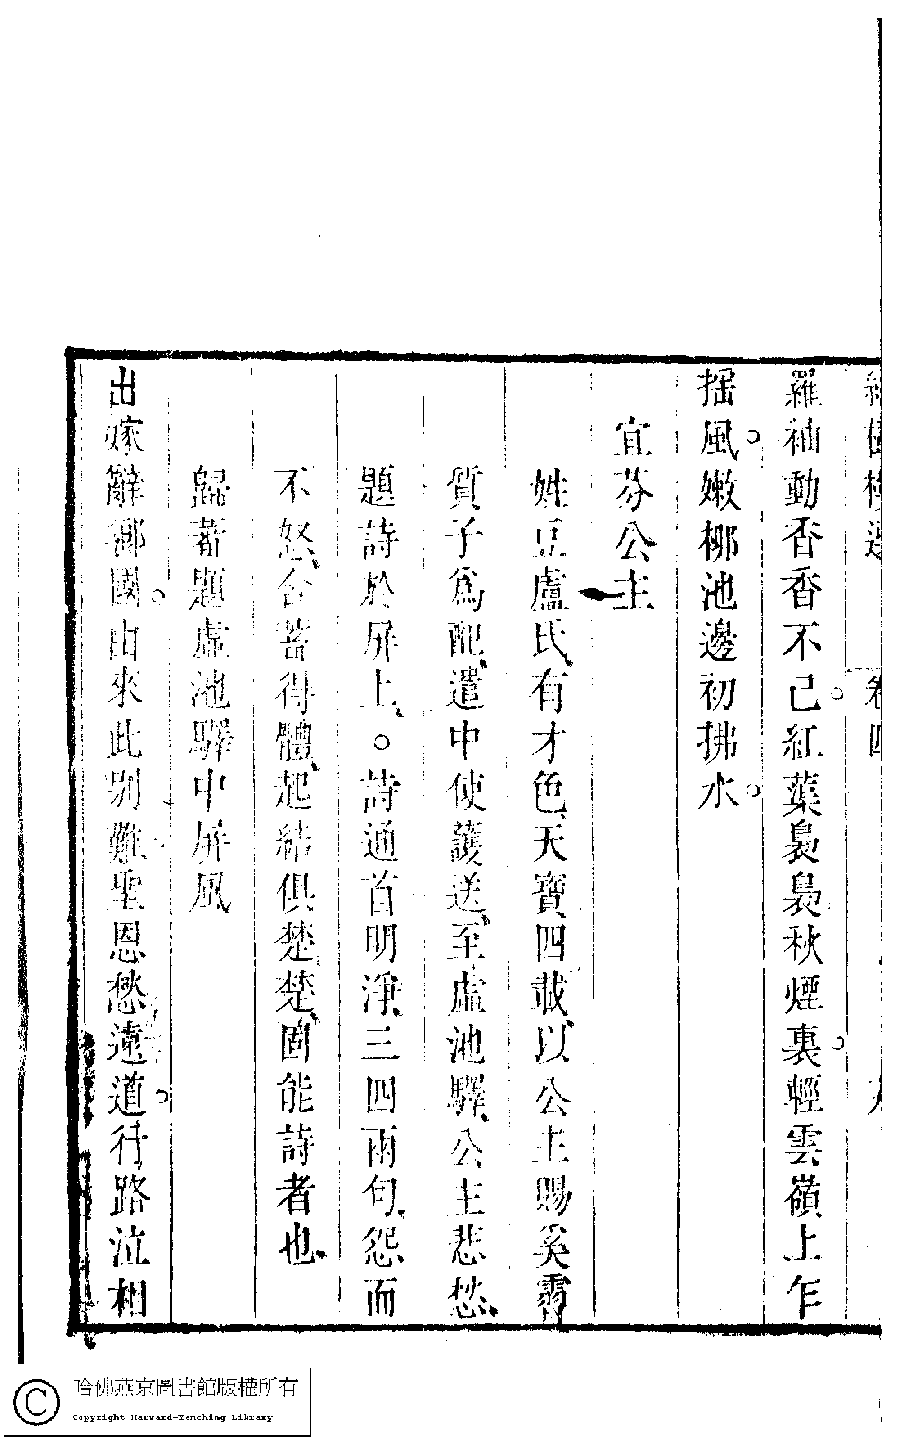 卷四
羅袖動香香不已紅蕖裊裊秋煙裏輕雲嶺上乍
搖風嫩柳池邊初拂水
宜芬公主
姓豆盧氏有才色天寶四載以公主賜奚霫
質子為配遣中使護送至虛池驛公主悲愁
題詩於屏上。詩通首明淨三四兩句怨而
不怒合蓄得體起結俱楚楚固能詩者也
歸蕃題虛池驛中屏風
出嫁辭鄉國由來此別難聖恩愁遠道行路泣相
哈佛燕京圖書館版權所有
Copyright Harvard-Yenching Library